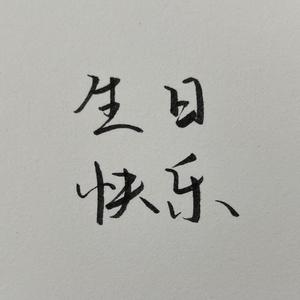 生日
快乐